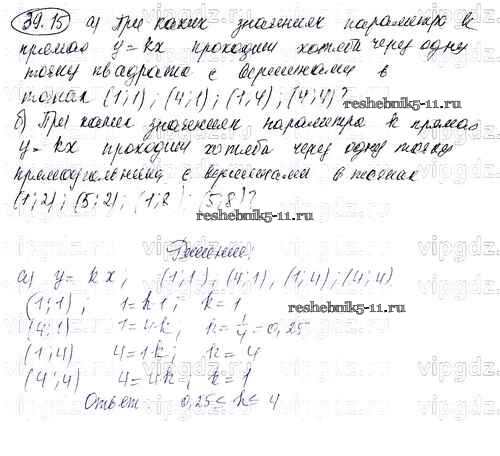 39.15 а) При каких значениях параметра k
прямая y=kx проходит хотя бы через одну
точку квадрата с вершинами в
точках (1;1); (4;1); (1;4); (4;4)?
reshebnik5-11.ru
б) При каких значениях параметра k прямая
y=kx проходит хотя бы через одну точку
прямоугольника с вершинами в точках
(1;2); (5;2); (1;8); (5;8)?
reshebnik5-11.ru
Решение:
а) y=kx; (1;1), (4;1), (1;4); (4;4)
(1;1); 1=k·1; k=1
reshebnik5-11.ru
(4;1) 1=4·k; k=1/4=0,25
(1;4) 4=1k; k=4
(4;4) 4=4k; k=1
Ответ 0,25≤k≤4